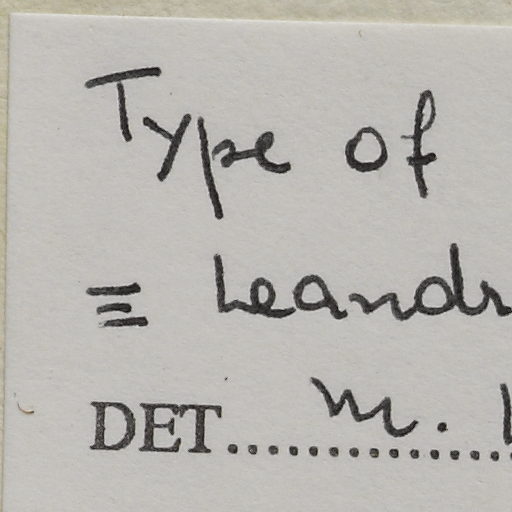 Type of
≡ Leandr
DET. M.